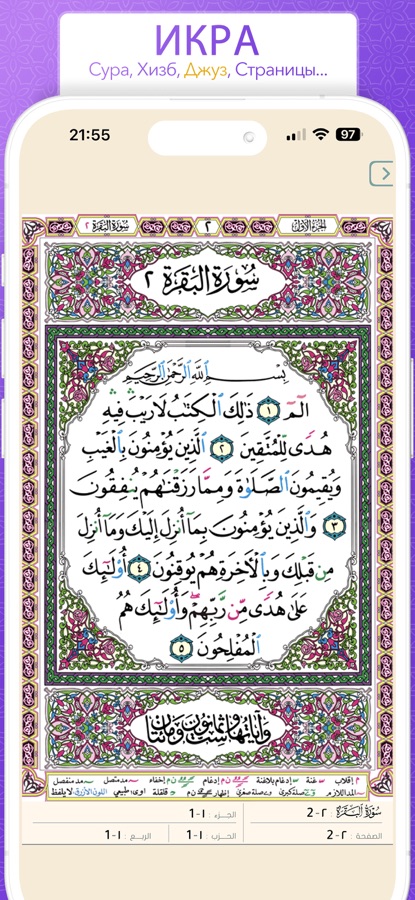 ИКРА
Сура, Хизб, Джуз, Страницы...
21:55
97
الجزء الأول
٢
سورة البقرة ٢
سورة البقرة ٢
بسم الله الرحمن الرحيم
الٓمٓ ١ ذَٰلِكَ ٱلْكِتَٰبُ لَا رَيْبَ فِيهِ
هُدًى لِّلْمُتَّقِينَ ٢ ٱلَّذِينَ يُؤْمِنُونَ بِٱلْغَيْبِ
وَيُقِيمُونَ ٱلصَّلَوٰةَ وَمِمَّا رَزَقْنَٰهُمْ يُنفِقُونَ
٣ وَٱلَّذِينَ يُؤْمِنُونَ بِمَآ أُنزِلَ إِلَيْكَ وَمَآ أُنزِلَ
مِن قَبْلِكَ وَبِٱلْءَاخِرَةِ هُمْ يُوقِنُونَ ٤ أُو۟لَٰٓئِكَ
عَلَىٰ هُدًى مِّن رَّبِّهِمْ وَأُو۟لَٰٓئِكَ هُمُ
ٱلْمُفْلِحُونَ ٥
وآياتها ست وثمانون ومائتان
م إقلاب غنة إدغام بلاغنة ن م إدغام ن م إخفاء مد متصل مد منفصل
المد اللازم صلة كبرى وصلة صغرى إظهار قلقلة مد طبيعي اللون الأزرق لا يلفظ
سورة البقرة : ٢-2
الجزء : ١-1
الصفحة : ٢-2
الحزب : ١-1
الربع : ١-1